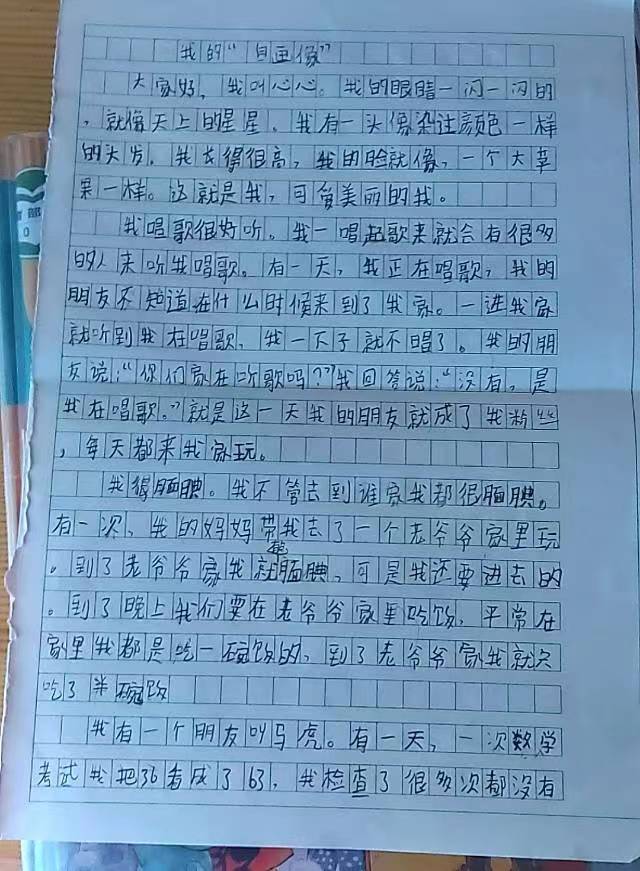 我的“自画像”
大家好，我叫心心。我的眼睛一闪一闪的
，就像天上的星星，我有一头像染过颜色一样
的头发，我长得很高，我的脸就像，一个大苹
果一样。这就是我，可爱美丽的我。
我唱歌很好听。我一唱起歌来就会有很多
的人来听我唱歌。有一天，我正在唱歌，我的
朋友不知道在什么时候来到了我家。一进我家
就听到我在唱歌，我一下子就不唱了。我的朋
友说：“你们家在听歌吗？”我回答说：“没有，是
我在唱歌。”就是这一天我的朋友就成了我粉丝
，每天都来我家玩。
我很腼腆。我不管去到谁家我都很腼腆。
有一次，我的妈妈带我去了一个老爷爷家里玩
。到了老爷爷家我就腼腆，可是我还要进去的
。到了晚上我们要在老爷爷家里吃饭，平常在
家里我都是吃一碗饭的，到了老爷爷家我就只
吃了半碗饭
我有一个朋友叫马虎。有一天，一次数学
考试我把36看成了63，我检查了很多次都没有